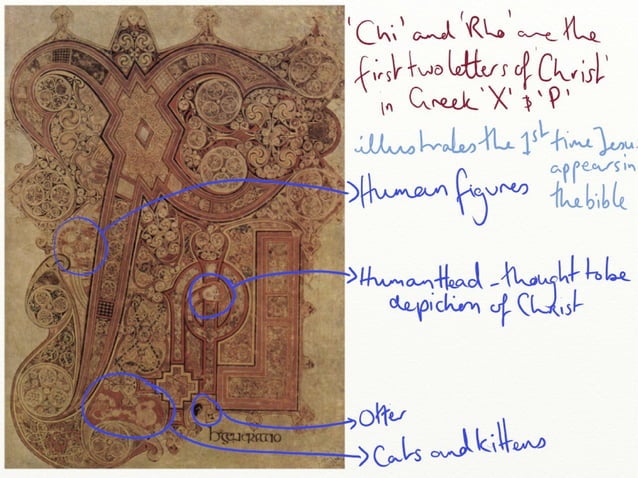 'Chi' and 'Rho' are the
first two letters of 'Christ'
in Greek 'X' & 'P'
illustrates the 1st time Jesus
appears in
the bible
Human figures
Human Head - thought to be
depiction of Christ
Otter
Cats and kittens
h generatio